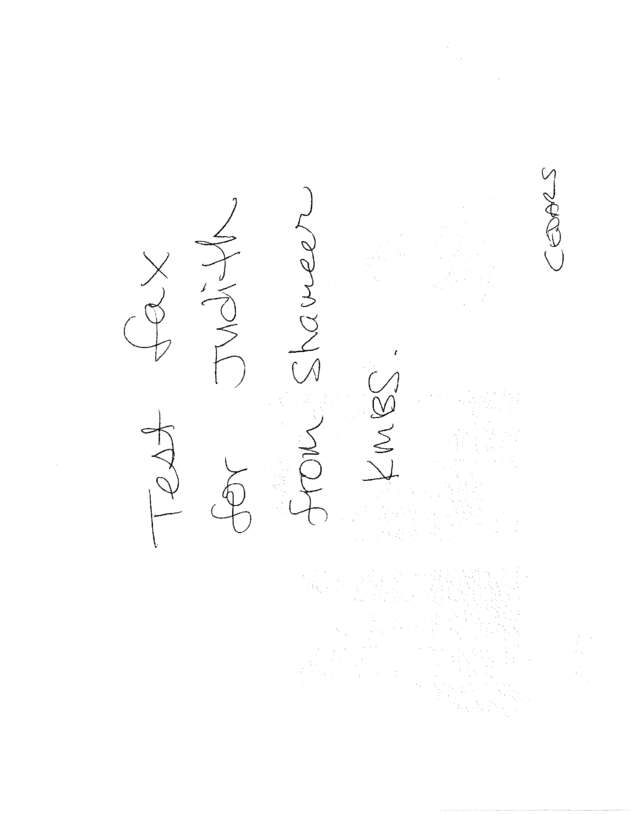 Test fax
for Judith
from Shameer
KMBS.
CEDARS